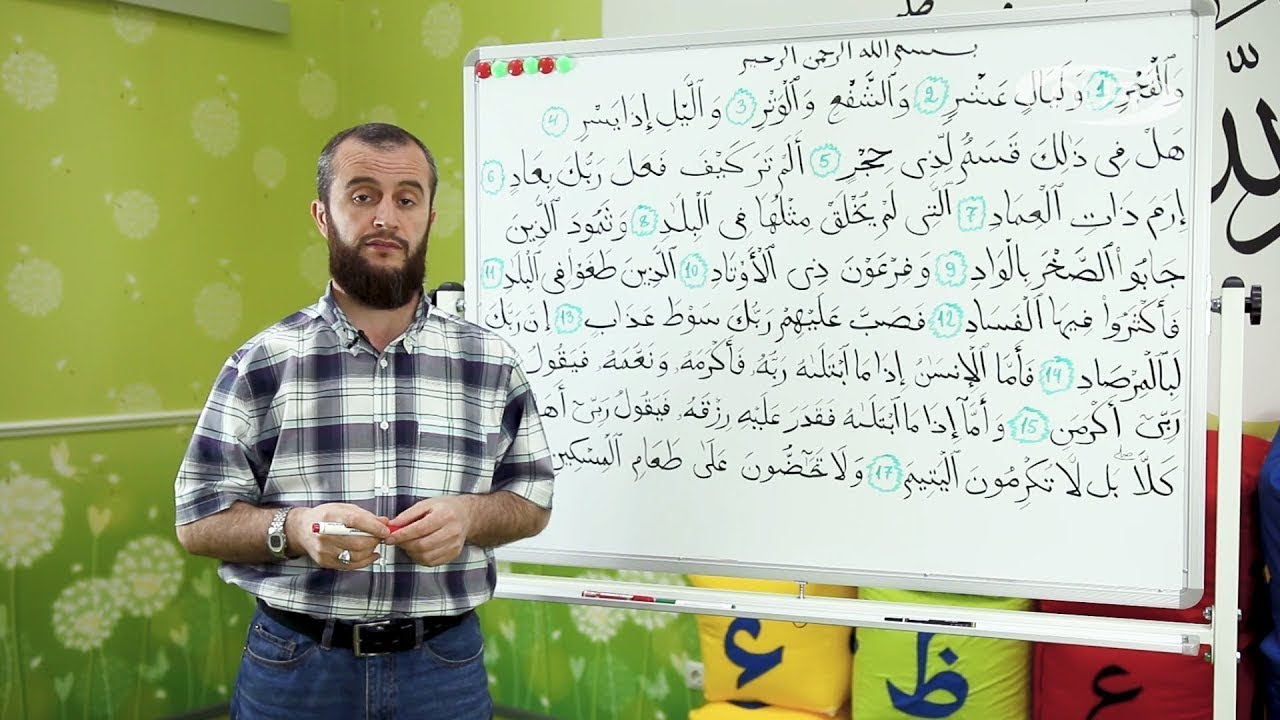 بسم الله الرحمن الرحيم
وَٱلْفَجْرِ 1 وَلَيَالٍ عَشْرٍ 2 وَٱلشَّفْعِ وَٱلْوَتْرِ 3 وَٱلَّيْلِ إِذَا يَسْرِ 4
هَلْ فِى ذَٰلِكَ قَسَمٌ لِّذِى حِجْرٍ 5 أَلَمْ تَرَ كَيْفَ فَعَلَ رَبُّكَ بِعَادٍ 6
إِرَمَ ذَاتِ ٱلْعِمَادِ 7 ٱلَّتِى لَمْ يُخْلَقْ مِثْلُهَا فِى ٱلْبِلَٰدِ 8 وَثَمُودَ ٱلَّذِينَ
جَابُوا۟ ٱلصَّخْرَ بِٱلْوَادِ 9 وَفِرْعَوْنَ ذِى ٱلْأَوْتَادِ 10 ٱلَّذِينَ طَغَوْا۟ فِى ٱلْبِلَٰدِ 11
فَأَكْثَرُوا۟ فِيهَا ٱلْفَسَادَ 12 فَصَبَّ عَلَيْهِمْ رَبُّكَ سَوْطَ عَذَابٍ 13 إِنَّ رَبَّكَ
لَبِٱلْمِرْصَادِ 14 فَأَمَّا ٱلْإِنسَٰنُ إِذَا مَا ٱبْتَلَىٰهُ رَبُّهُۥ فَأَكْرَمَهُۥ وَنَعَّمَهُۥ فَيَقُولُ
رَبِّىٓ أَكْرَمَنِ 15 وَأَمَّآ إِذَا مَا ٱبْتَلَىٰهُ فَقَدَرَ عَلَيْهِ رِزْقَهُۥ فَيَقُولُ رَبِّىٓ
كَلَّا ۖ بَل لَّا تُكْرِمُونَ ٱلْيَتِيمَ 17 وَلَا تَحَٰٓضُّونَ عَلَىٰ طَعَامِ ٱلْمِسْكِينِ
ظ
ع